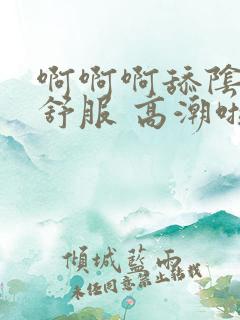 啊啊啊舔陰
舒服 高潮啦
傾城藍雨
未经同意禁止转载